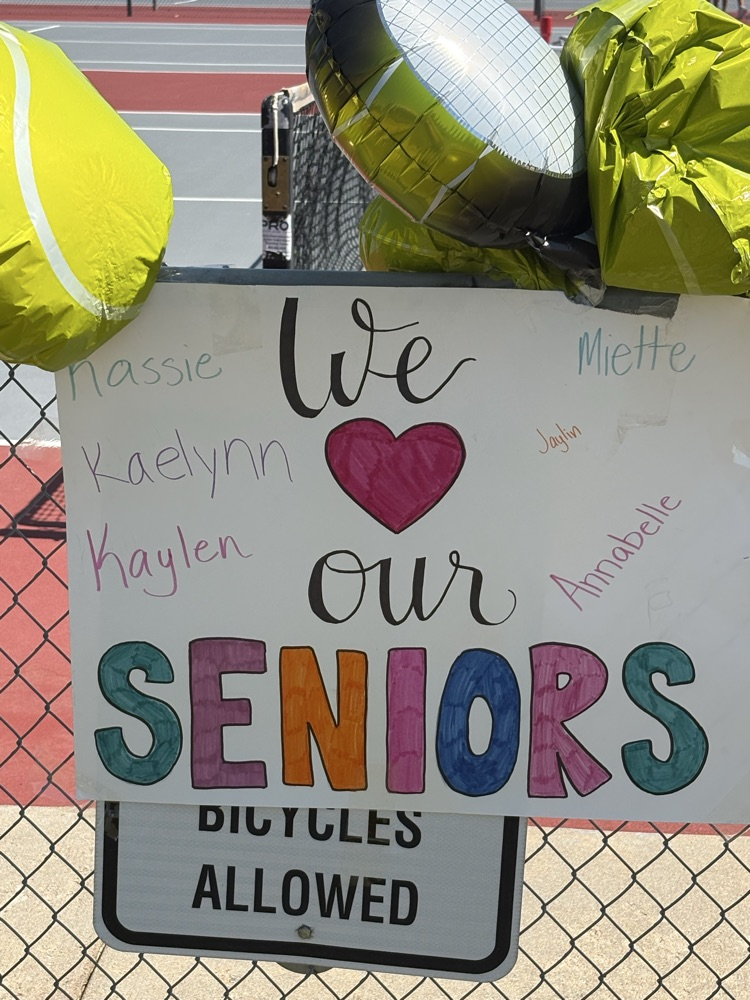 PRO
We
Kassie
Miette
Kaelynn
Jaylin
Kaylen
Annabelle
our
SENIORS
BICYCLES
ALLOWED